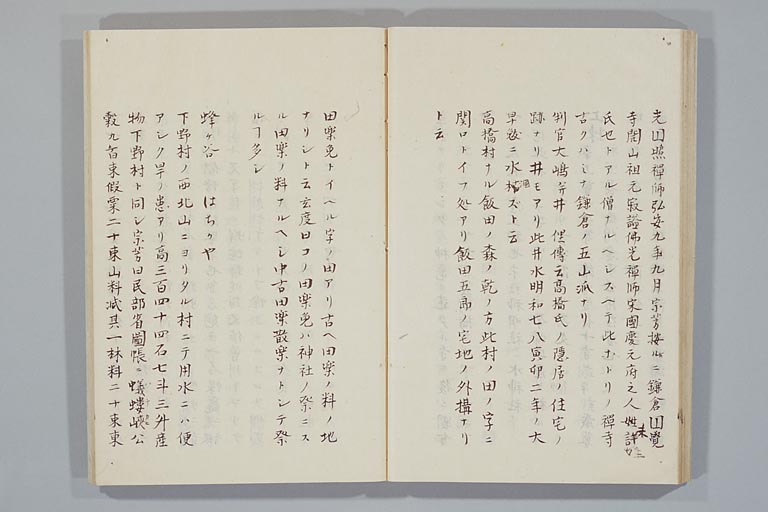 光円照禅師弘安九年九月宗芳按ルニ鎌倉円覚
寺開山祖元寂諡佛光禅師宋國慶元府之人姓許
氏也トアル僧ナルヘシスヘテ此ホトリノ禅寺
古クハミナ鎌倉ノ五山派ナリ
判官大嶋井 俚傳云高橋氏ノ隠居ノ住宅ノ
跡ナリ井モアリ此井水明和七八寅卯二年ノ大
旱魃ニ水ズト云
高橋村ナル飯田ノ森ノ乾ノ方此村ノ田ノ字ニ
関口トイフ処アリ飯田五郎ノ宅地ノ外構ナリ
ト云
田樂免トイヘル字ノ田アリ古ヘ田樂ノ料ノ地
ナリシト云玄度曰コノ田樂免ハ神社ノ祭ニス
ル田樂ノ料ナルヘシ中古田樂散樂ナトシテ祭
ルヿ多シ
蜂ヶ谷 はちがや
下野村ノ西北山ニヨリタル村ニテ用水ニハ便
アシク旱ノ患アリ高三百四十四石七斗三升産
物下野村ト同シ宗芳曰民部省圖帳ニ蟻螻峽公
穀九百束假粟二十束山料减其一林料二十束東